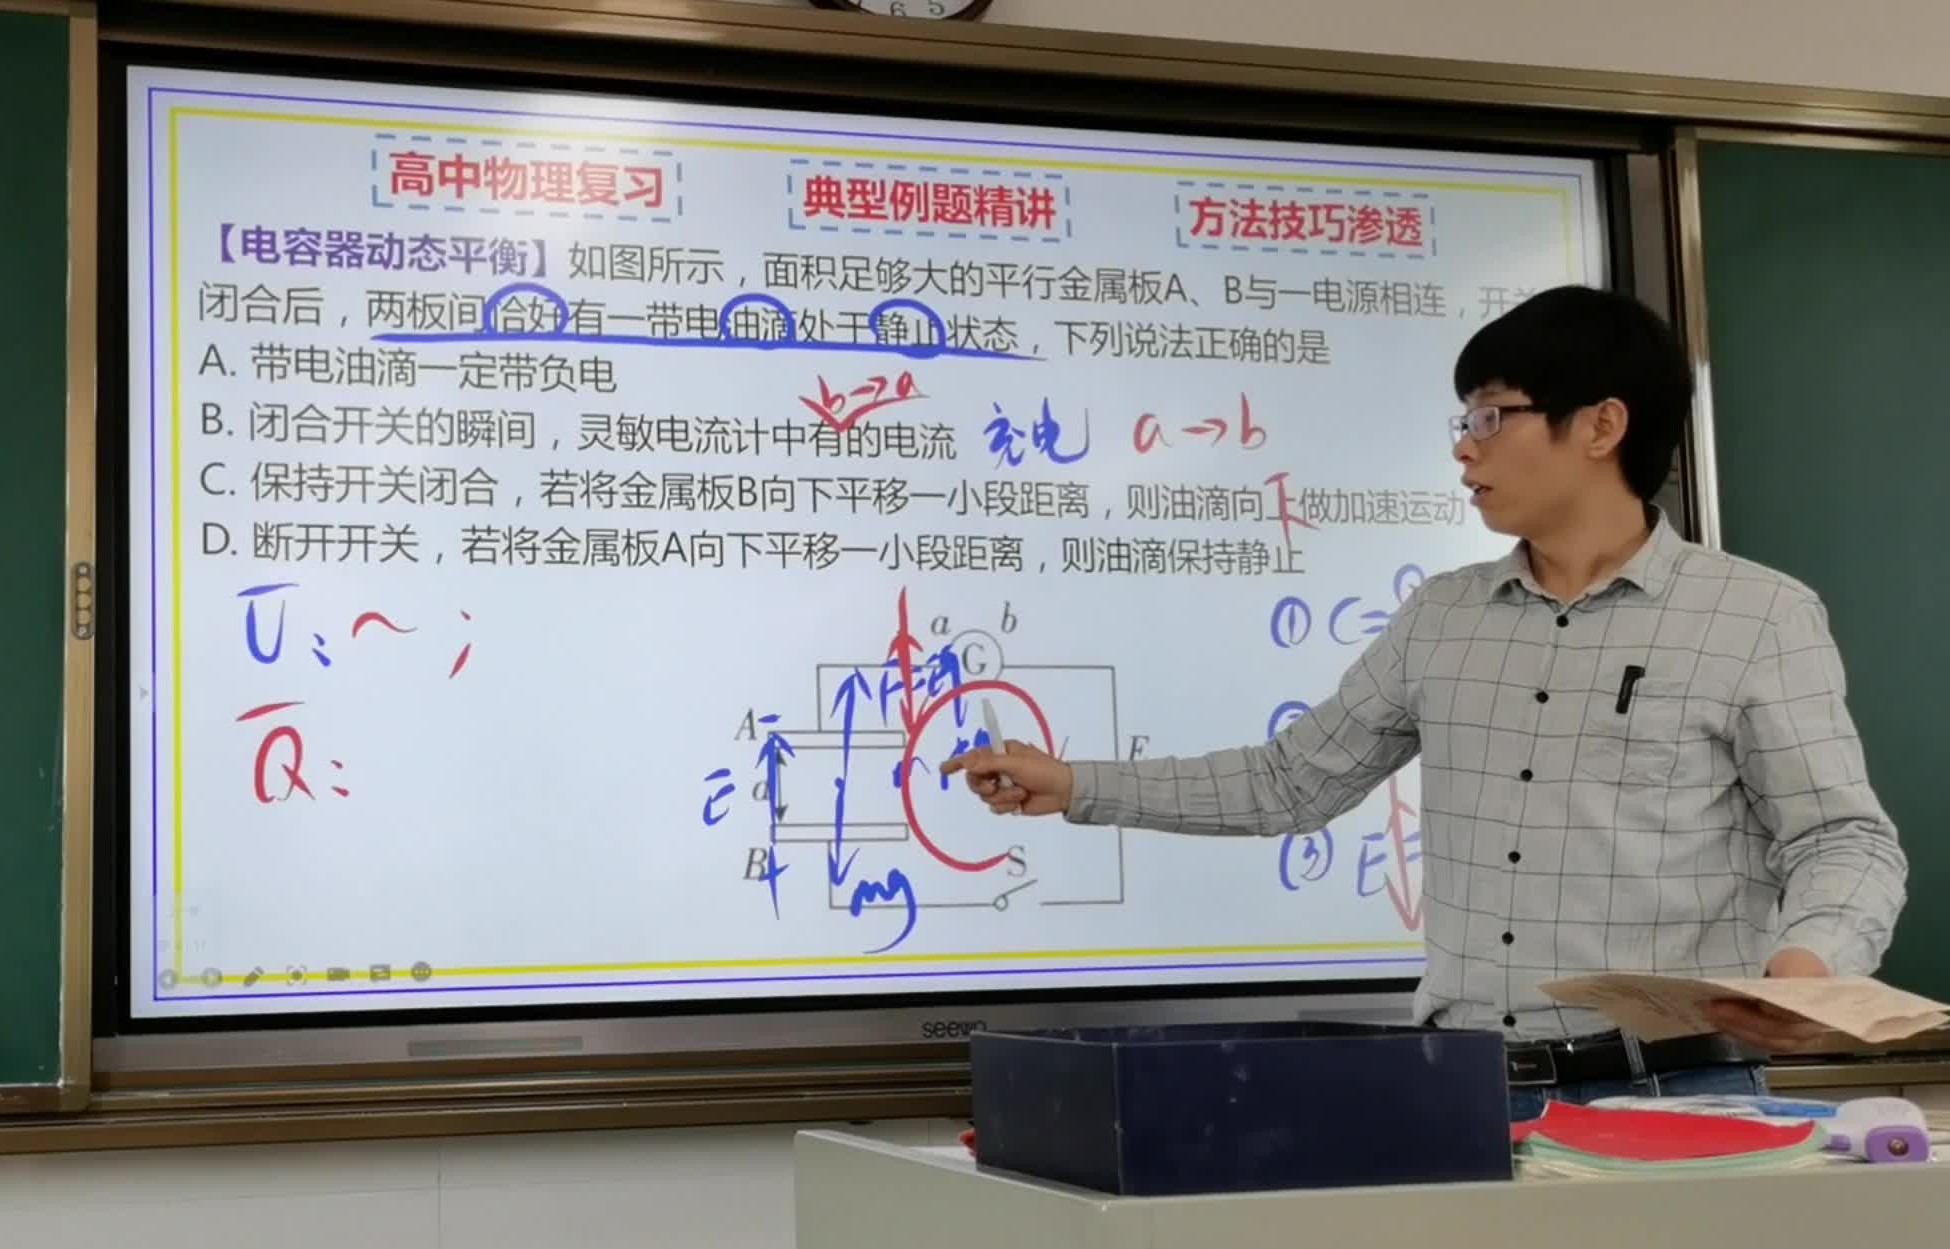 6 5
高中物理复习 典型例题精讲 方法技巧渗透
【电容器动态平衡】如图所示，面积足够大的平行金属板A、B与一电源相连，开
闭合后，两板间恰好有一带电油滴处于静止状态，下列说法正确的是
A. 带电油滴一定带负电
b→a
B. 闭合开关的瞬间，灵敏电流计中有的电流 充电 a→b
C. 保持开关闭合，若将金属板B向下平移一小段距离，则油滴向下做加速运动
D. 断开开关，若将金属板A向下平移一小段距离，则油滴保持静止
U: ~ ;
① C=
a b
G
F=
Q:
A -
E d
E
B +
S
mg
(3) E=
seewo